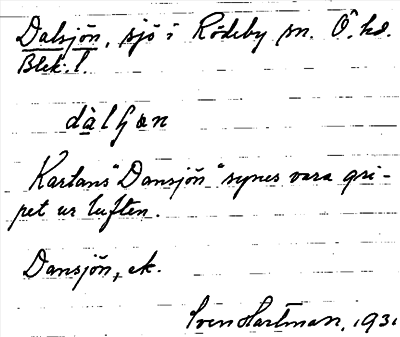 Dalsjön, sjö i Rödeby sn. Ö. hd.
Blek. l.
Kartans "Dansjön" synes vara gri-
pet ur luften.
Dansjön, ek.
Sven Hartman, 1931